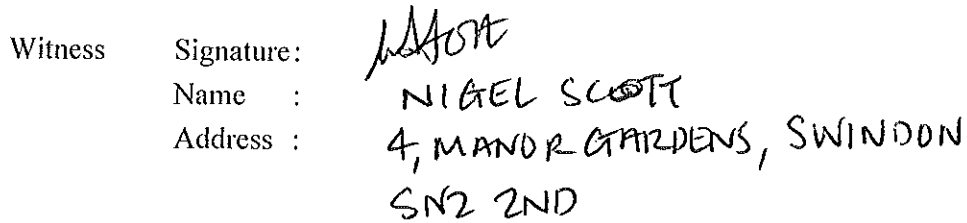 Witness Signature:
Name : NIGEL SCOTT
Address : 4, MANOR GARDENS, SWINDON
SN2 2ND